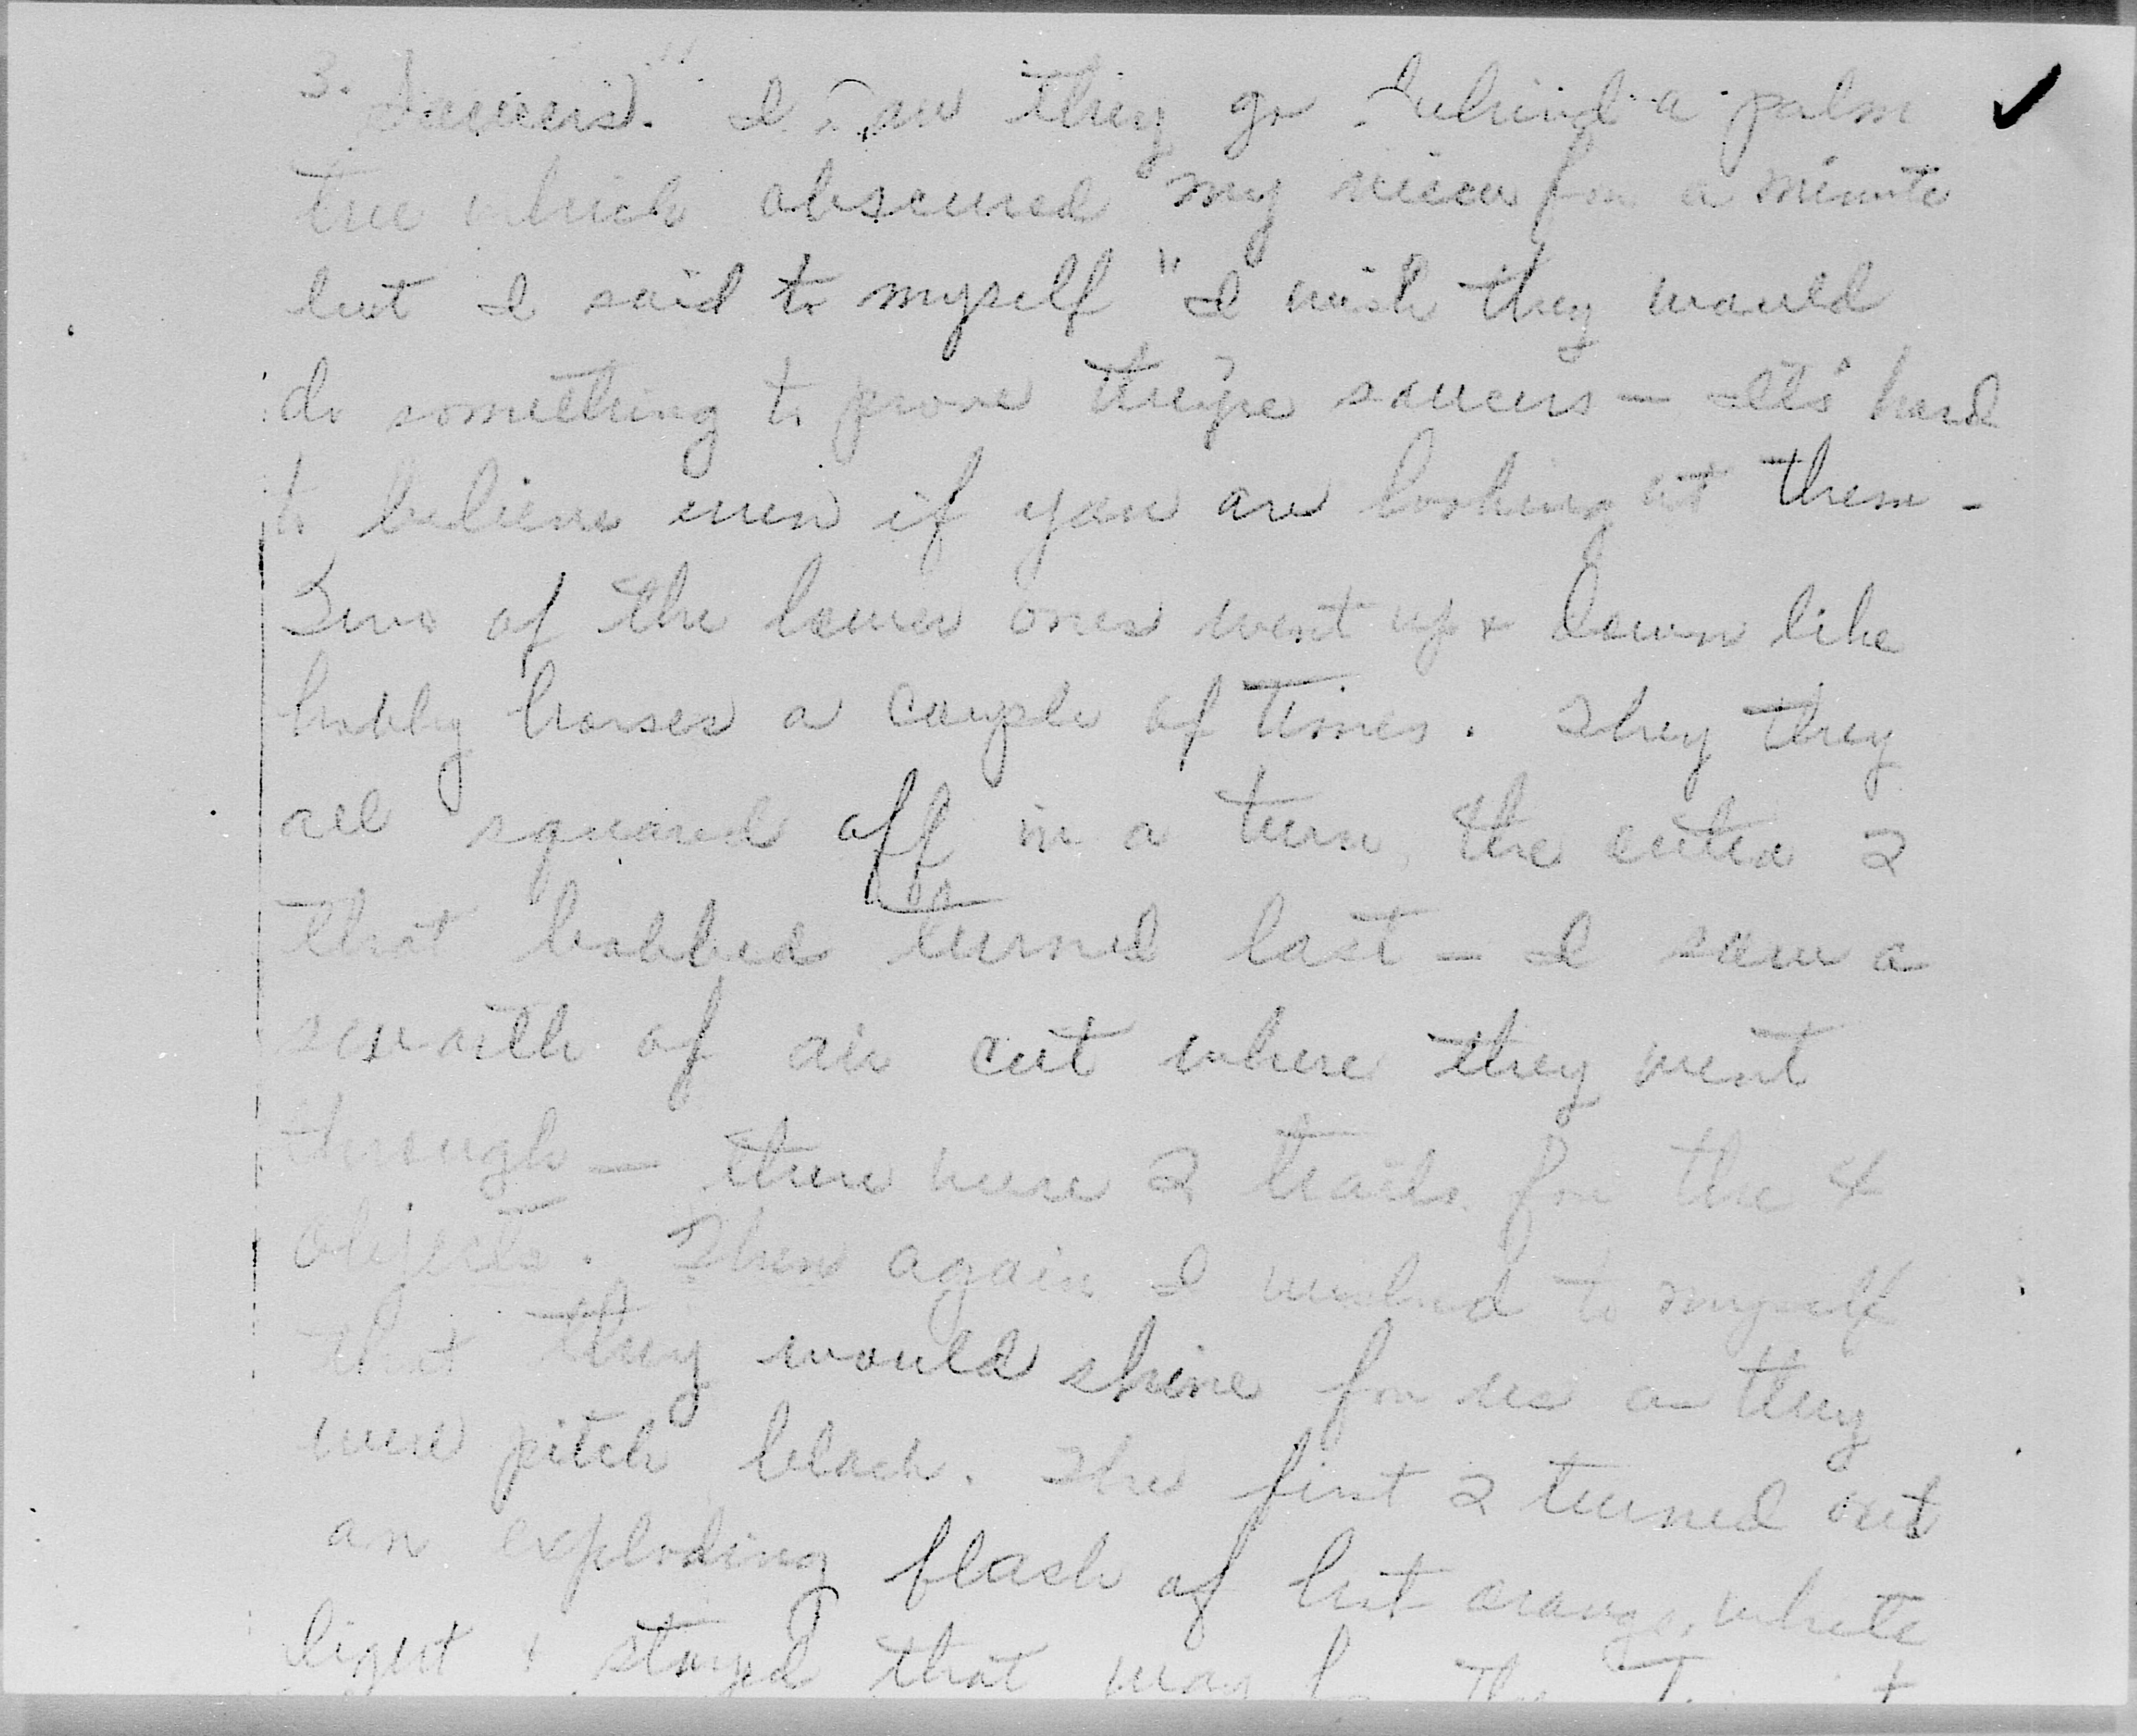 3. Saucers". I saw they go behind a palm
tree which obscured my view for a minute
but I said to myself "I wish they would
do something to prove they're saucers — It's hard
to believe even if you are looking at them -
Two of the lower ones went up & down like
hobby horses a couple of times. They they
all squared off in a turn, the outer 2
that bobbed turned last — I saw a
swath of air cut where they went
through — there were 2 trails for the 4
objects. Then again I wished to myself
that they would shine for us as they
were pitch black. The first 2 turned out
an exploding flash of hot orange, white
light & stayed that way